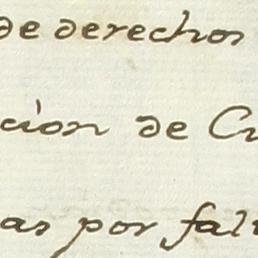 de derechos
cion de Cu
as por fal